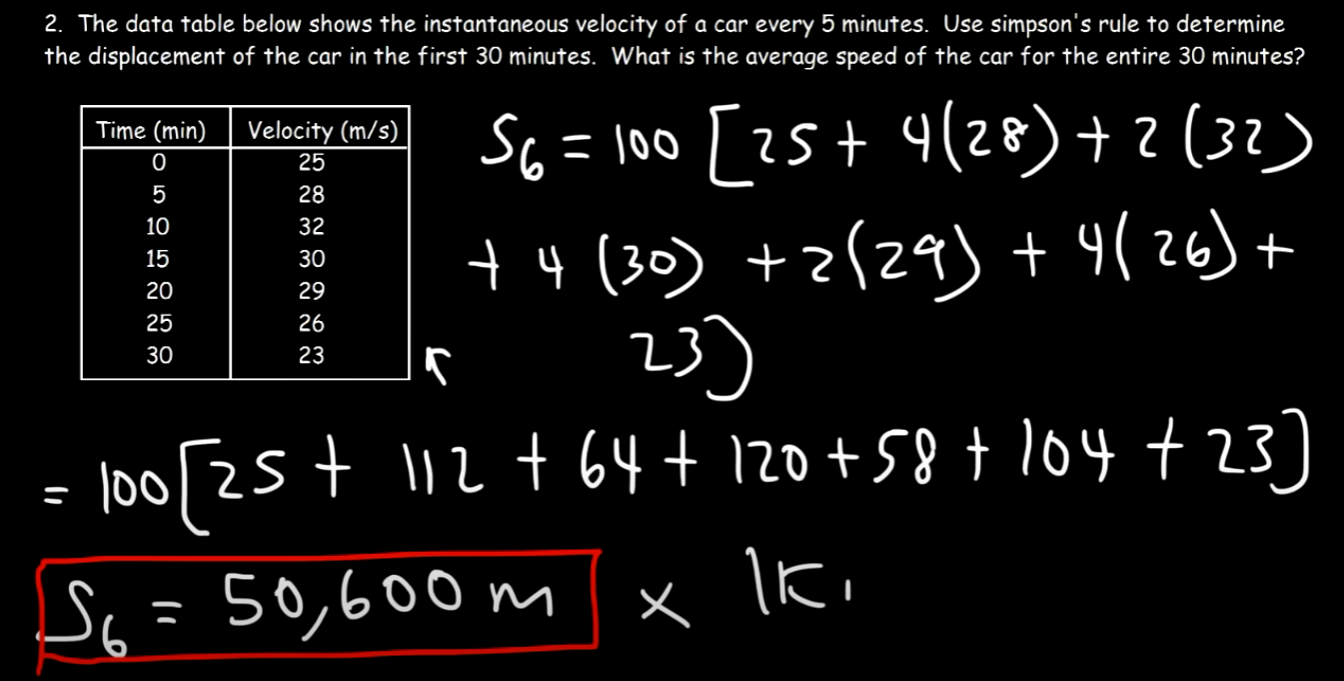 2. The data table below shows the instantaneous velocity of a car every 5 minutes. Use simpson's rule to determine
the displacement of the car in the first 30 minutes. What is the average speed of the car for the entire 30 minutes?
Time (min) Velocity (m/s)
0 25
5 28
10 32
15 30
20 29
25 26
30 23
S6 = 100 [25 + 4(28) + 2(32)
+ 4(30) + 2(29) + 4(26) +
23]
= 100[25 + 112 + 64 + 120 + 58 + 104 + 23]
S6 = 50,600 m x 1k